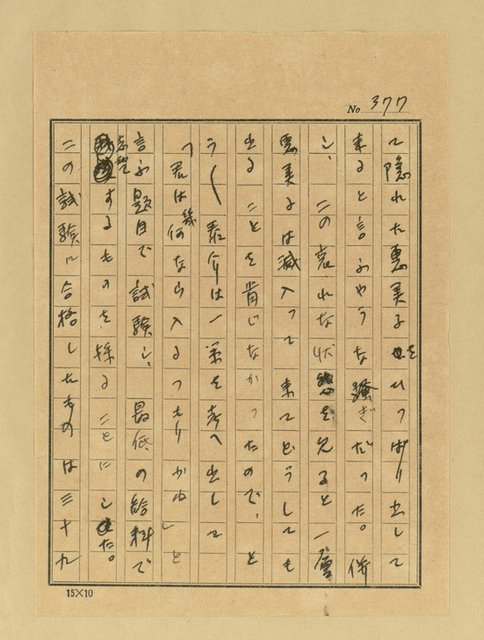 No. 377
て隠れた恵美子をひつぱり出して
来ると言ふやうな騒ぎだつた。併
し、この哀れな状態を見ると一層
恵美子は滅入つて来てどうしても
出ることを肯じなかつたので、と
う〱泰介は一策を考へ出して
「君は幾何なら入るつもりかね」と
言ふ題目で試験し、最低の給料で
志望するものを採ることにした。
この試験に合格したものは三十九
15×10